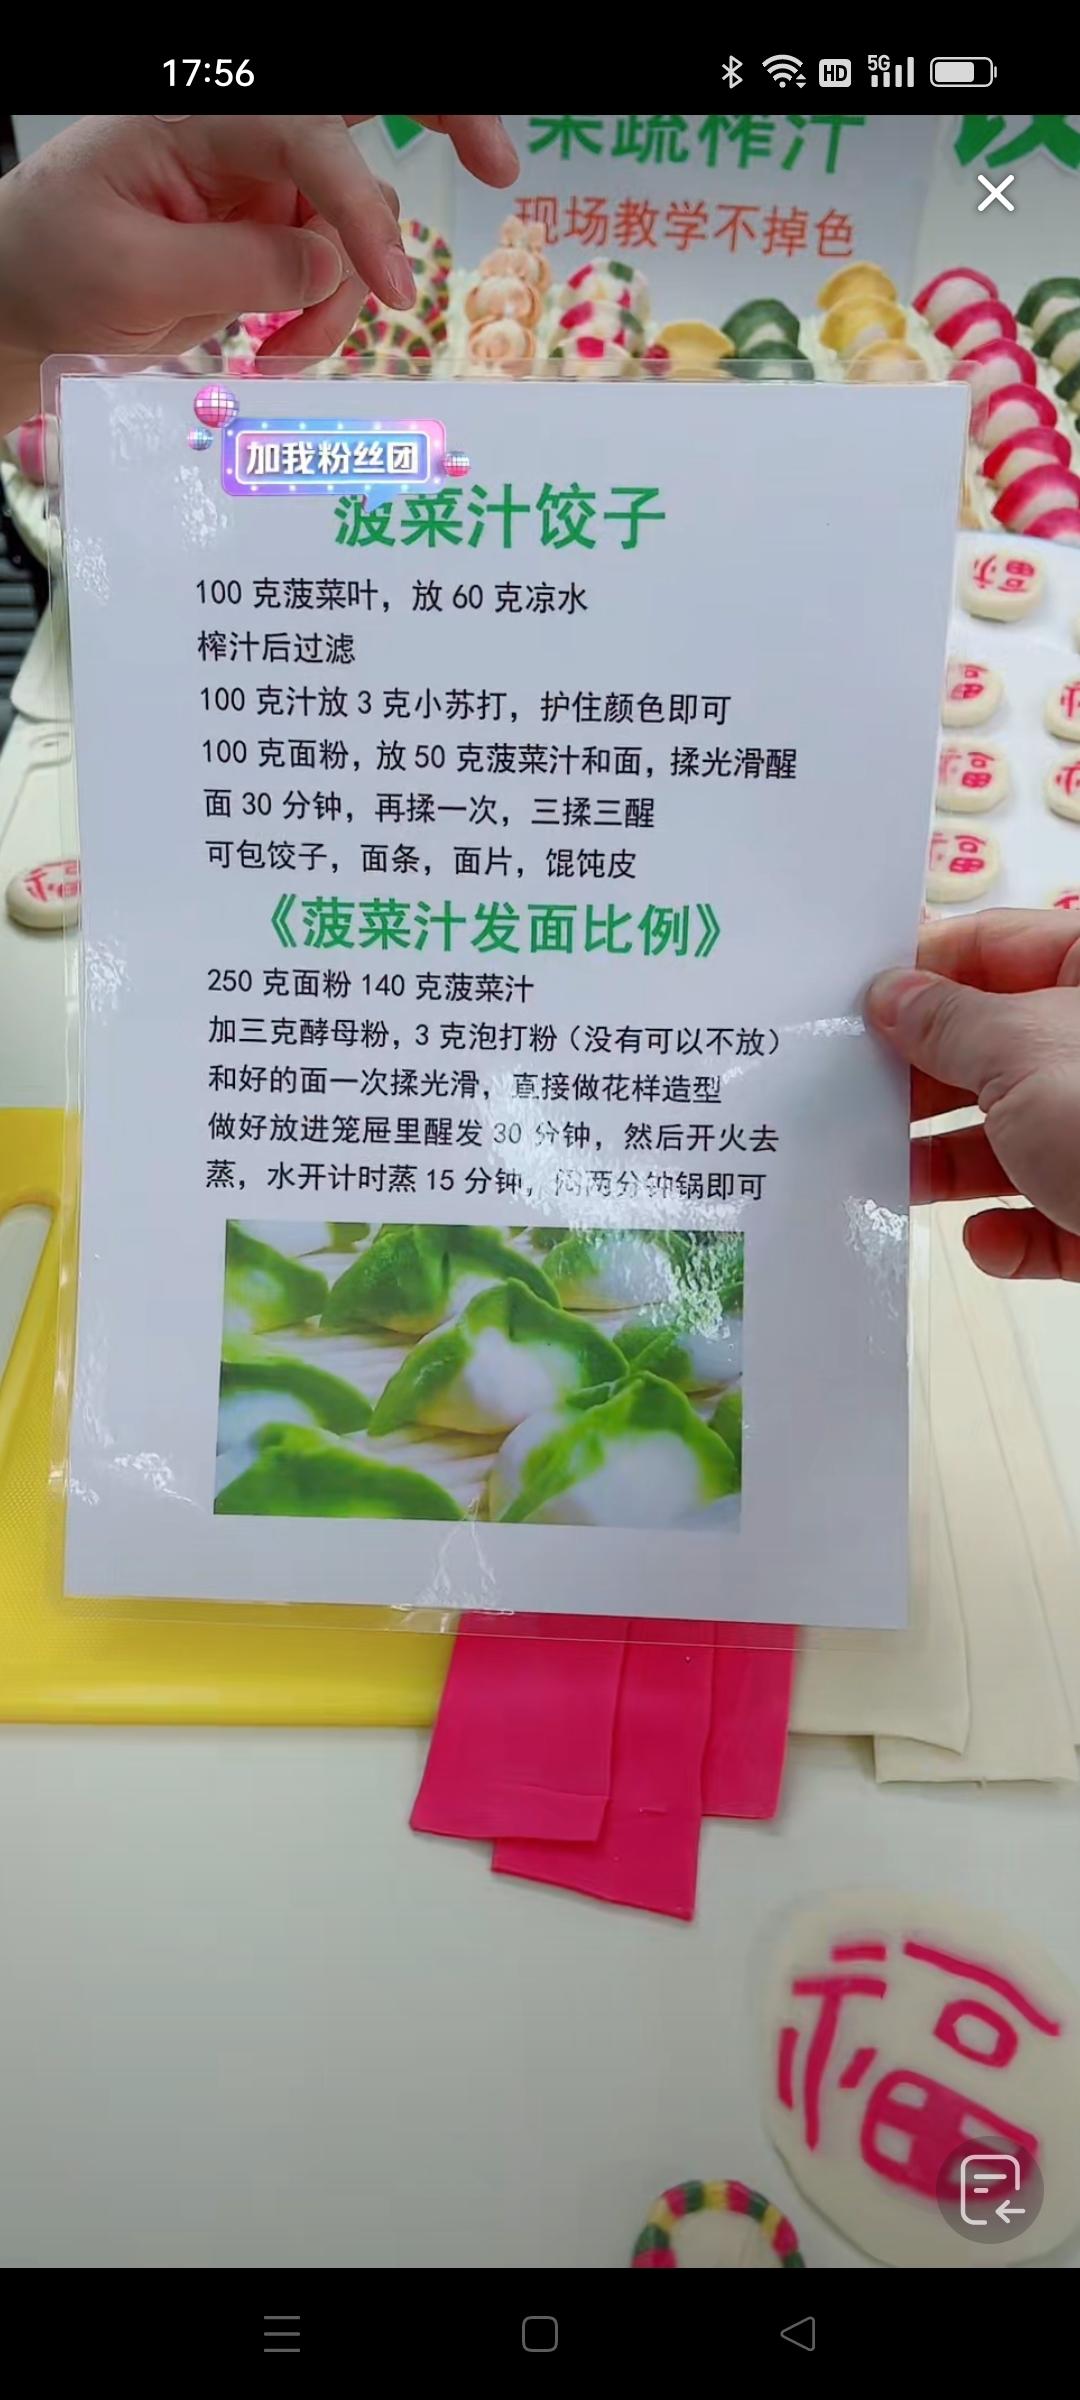 17:56
HD
5G
果蔬榨汁
饺
现场教学不掉色
加我粉丝团
菠菜汁饺子
100 克菠菜叶，放 60 克凉水
榨汁后过滤
100 克汁放 3 克小苏打，护住颜色即可
100 克面粉，放 50 克菠菜汁和面，揉光滑醒
面 30 分钟，再揉一次，三揉三醒
可包饺子，面条，面片，馄饨皮
《菠菜汁发面比例》
250 克面粉 140 克菠菜汁
加三克酵母粉，3 克泡打粉（没有可以不放）
和好的面一次揉光滑，直接做花样造型
做好放进笼屉里醒发 30 分钟，然后开火去
蒸，水开计时蒸 15 分钟，闷两分钟锅即可
福
福
福
福
福
福